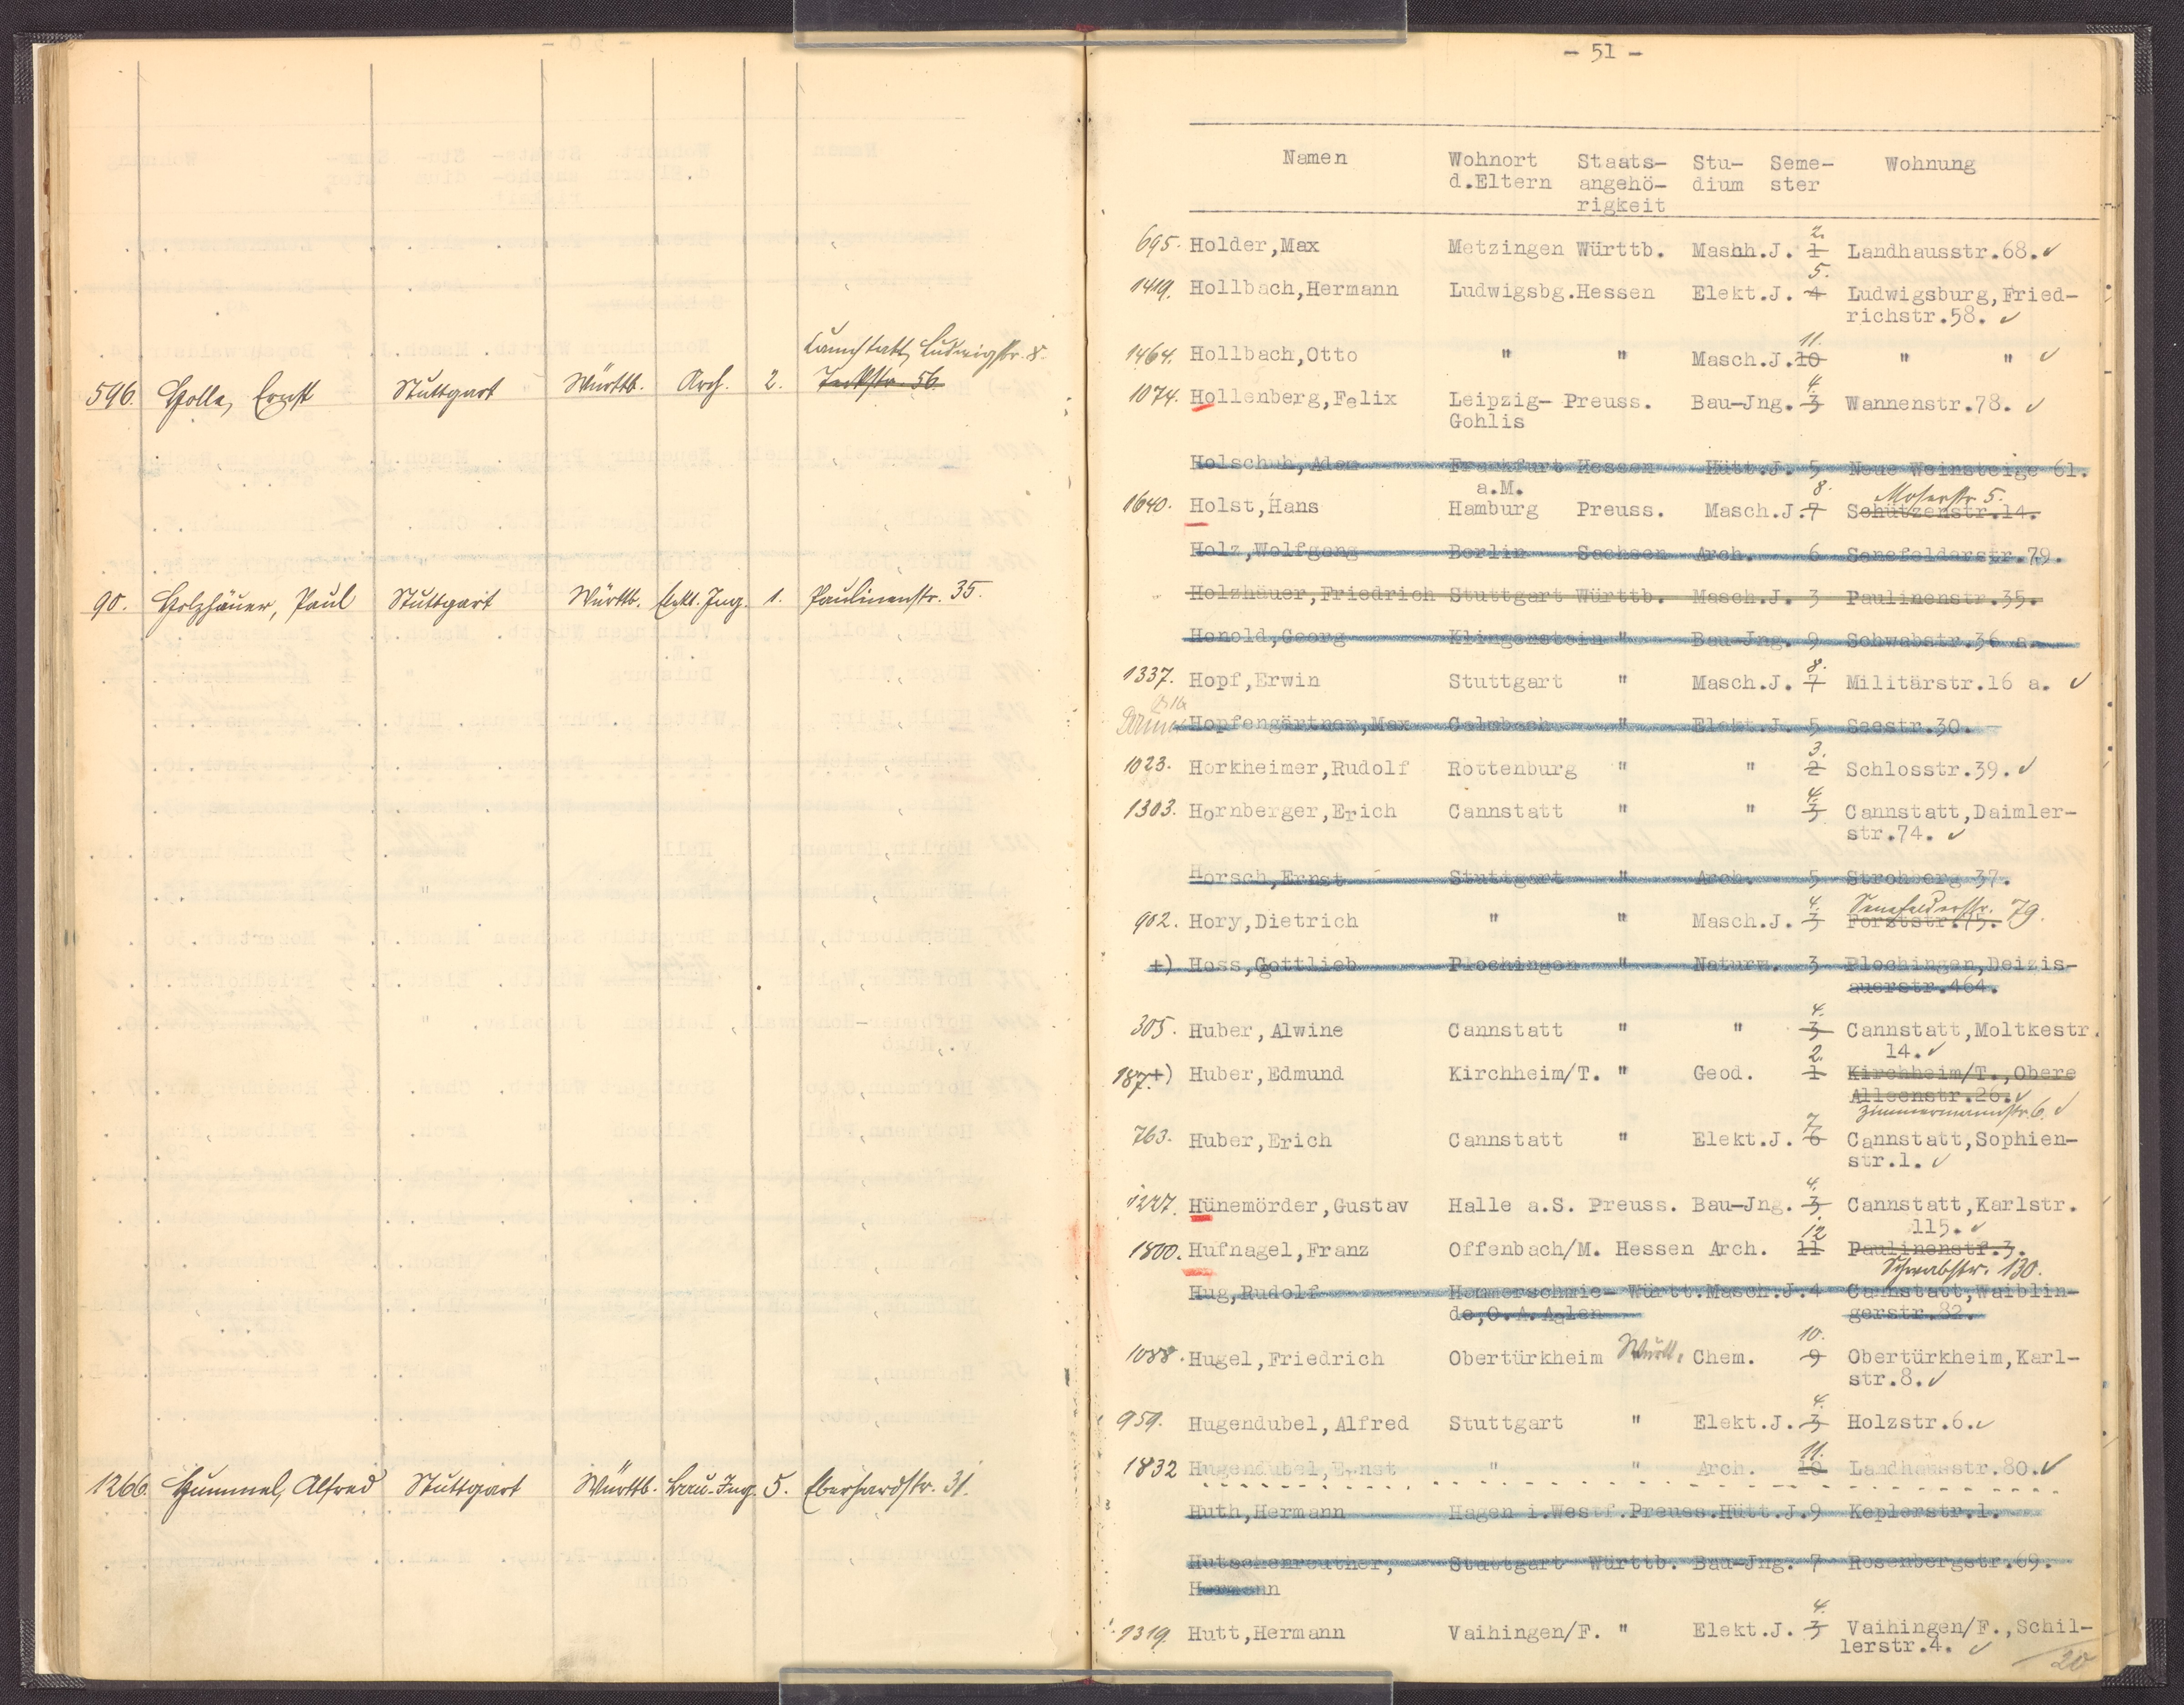 Cannstatt, Ludwigstr. 8.
596. Holla, Ernst Stuttgart Württb. Arch. 2. Teckstr. 56.
90. Holzhäuer, Paul Stuttgart Württb. Elekt. Ing. 1. Paulinenstr. 35.
1266. Hummel, Alfred Stuttgart Württb. Bau-Ing. 5. Eberhardstr. 31.
- 51 -
Namen Wohnort Staats- Stu- Seme- Wohnung
d.Eltern angehö- dium ster
rigkeit
695. Holder,Max Metzingen Württb. Masch.J. 1 2. Landhausstr.68. ✓
1419. Hollbach,Hermann Ludwigsbg.Hessen Elekt.J. 4 5. Ludwigsburg,Fried-
richstr.58. ✓
1464. Hollbach,Otto " " Masch.J.10 11. " " ✓
1074. Hollenberg,Felix Leipzig- Preuss. Bau-Jng. 3 4. Wannenstr.78. ✓
Gohlis
Holschuh,Adam Frankfurt Hessen Hütt.J. 5 Neue Weinsteige 61.
a.M.
Moserstr. 5.
1640. Holst,Hans Hamburg Preuss. Masch.J.7 8. Schützenstr.14.
Holz,Wolfgang Berlin Sachsen Arch. 6 Senefelderstr.79.
Holzhäuer,Friedrich Stuttgart Württb. Masch.J. 3 Paulinenstr.35.
Honold,Georg Klingenstein " Bau-Jng. 9 Schwabstr.36 a.
1337. Hopf,Erwin Stuttgart " Masch.J. 7 8. Militärstr.16 a. ✓
Hopfengärtner,Max Calmbach " Elekt.J. 5 Seestr.30.
1023. Horkheimer,Rudolf Rottenburg " " 2 3. Schlosstr.39. ✓
1303. Hornberger,Erich Cannstatt " " 3 4. Cannstatt,Daimler-
str.74. ✓
Horsch,Ernst Stuttgart " Arch. 5 Strohberg 37.
Senefelderstr. 79.
902. Hory,Dietrich " " Masch.J. 3 4. Forststr.75.
+) Hoss,Gottlieb Plochingen " Naturw. 3 Plochingen,Deizis-
auerstr.464.
305. Huber,Alwine Cannstatt " " 3 4. Cannstatt,Moltkestr.
14. ✓
187.+) Huber,Edmund Kirchheim/T. " Geod. 1 2. Kirchheim/T.,Obere
Alleenstr.26. ✓
Zimmermannstr. 6. ✓
763. Huber,Erich Cannstatt " Elekt.J. 6 7. Cannstatt,Sophien-
str.1. ✓
1227. Hünemörder,Gustav Halle a.S. Preuss. Bau-Jng. 3 4. Cannstatt,Karlstr.
115. ✓
1800. Hufnagel,Franz Offenbach/M. Hessen Arch. 11 12. Paulinenstr.3.
Schwabstr. 130.
Hug,Rudolf Hammerschmie- Württ.Masch.J.4 Cannstatt,Waiblin-
de,O.A.Aalen gerstr.82.
1088. Hugel,Friedrich Obertürkheim Württ. Chem. 9 10. Obertürkheim,Karl-
str.8. ✓
959. Hugendubel,Alfred Stuttgart " Elekt.J. 3 4. Holzstr.6. ✓
1832 Hugendubel,Ernst " " Arch. 10 11. Landhausstr.80. ✓
Huth,Hermann Hagen i.Westf.Preuss.Hütt.J.9 Keplerstr.1.
Hutschenreuther, Stuttgart Württb. Bau-Jng. 7 Rosenbergstr.69.
Hermann
1319. Hutt,Hermann Vaihingen/F. " Elekt.J. 3 4. Vaihingen/F.,Schil-
lerstr.4. ✓
20